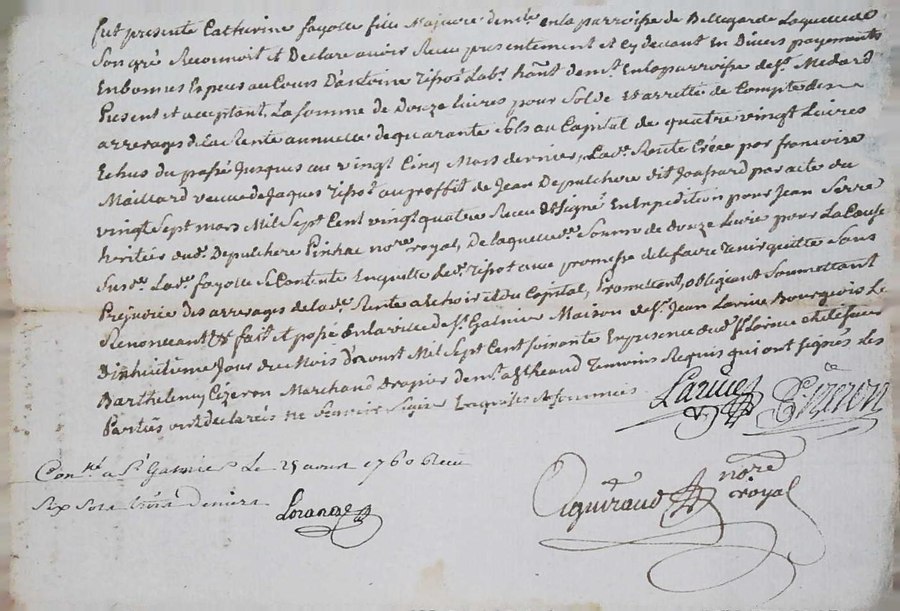 fut presente Catherine fayolle fille Majeure demte en la parroisse de Bellegarde Laquelle de
Son gré Reconnoit et Declare avoir Receu presentement et cy devant En Divers payements
En bonnes Espeus au Cours D'antoine Tipot Labr. hant demt. En la parroisse de St. Medard
Present et acceptant La somme de Douze Livres pour Solde et arretté de Compte des
arrerages de la Rente annuelle de quarante Sols au Capital de quatre vingt Livres
Echus du passé Jusques au vingt Cinq Mars dernier, Lade. Rente Créée par francoise
Maillard veuve de Jaques Tipot au proffit de Jean Depulchere dit Joassard par acte du
vingt Sept mars Mil Sept Cent vingt quatre Receu et Signé En Expedition pour Jean Serre
heritier dud. Depulchere Pinhac nore. royal, De laquelle de. Somme de Douze Livre pour La Cause
Susde. Lade. fayolle Se Contente En quitte led. Tipot avec promesse de le faire Tenir quitte Sans
Prejudice des arrerages de lade. Rente a Echoir et du Capital, Promettant, obligeant Soumettant
Renonceant &c fait et passé En la ville de St. Galmier Maison de Sr. Jean Larive Bourgeois Le
Dixhuitieme Jour du Mois D'aoust Mil Sept Cent Soixante En presence dud. Sr. Larive et de Sieur
Barthelemy Cizeron Marchand drapier demt. a St. heand Temoins Requis qui ont Signés Les
Parties ont declarés ne Scavoir Signer Enquises et Sommées
Larive Cizeron
Conllé a St Galmier Le 29 aoust 1760 Receu
Six Sols trois deniers
Lorande
Aguiraud nore royal